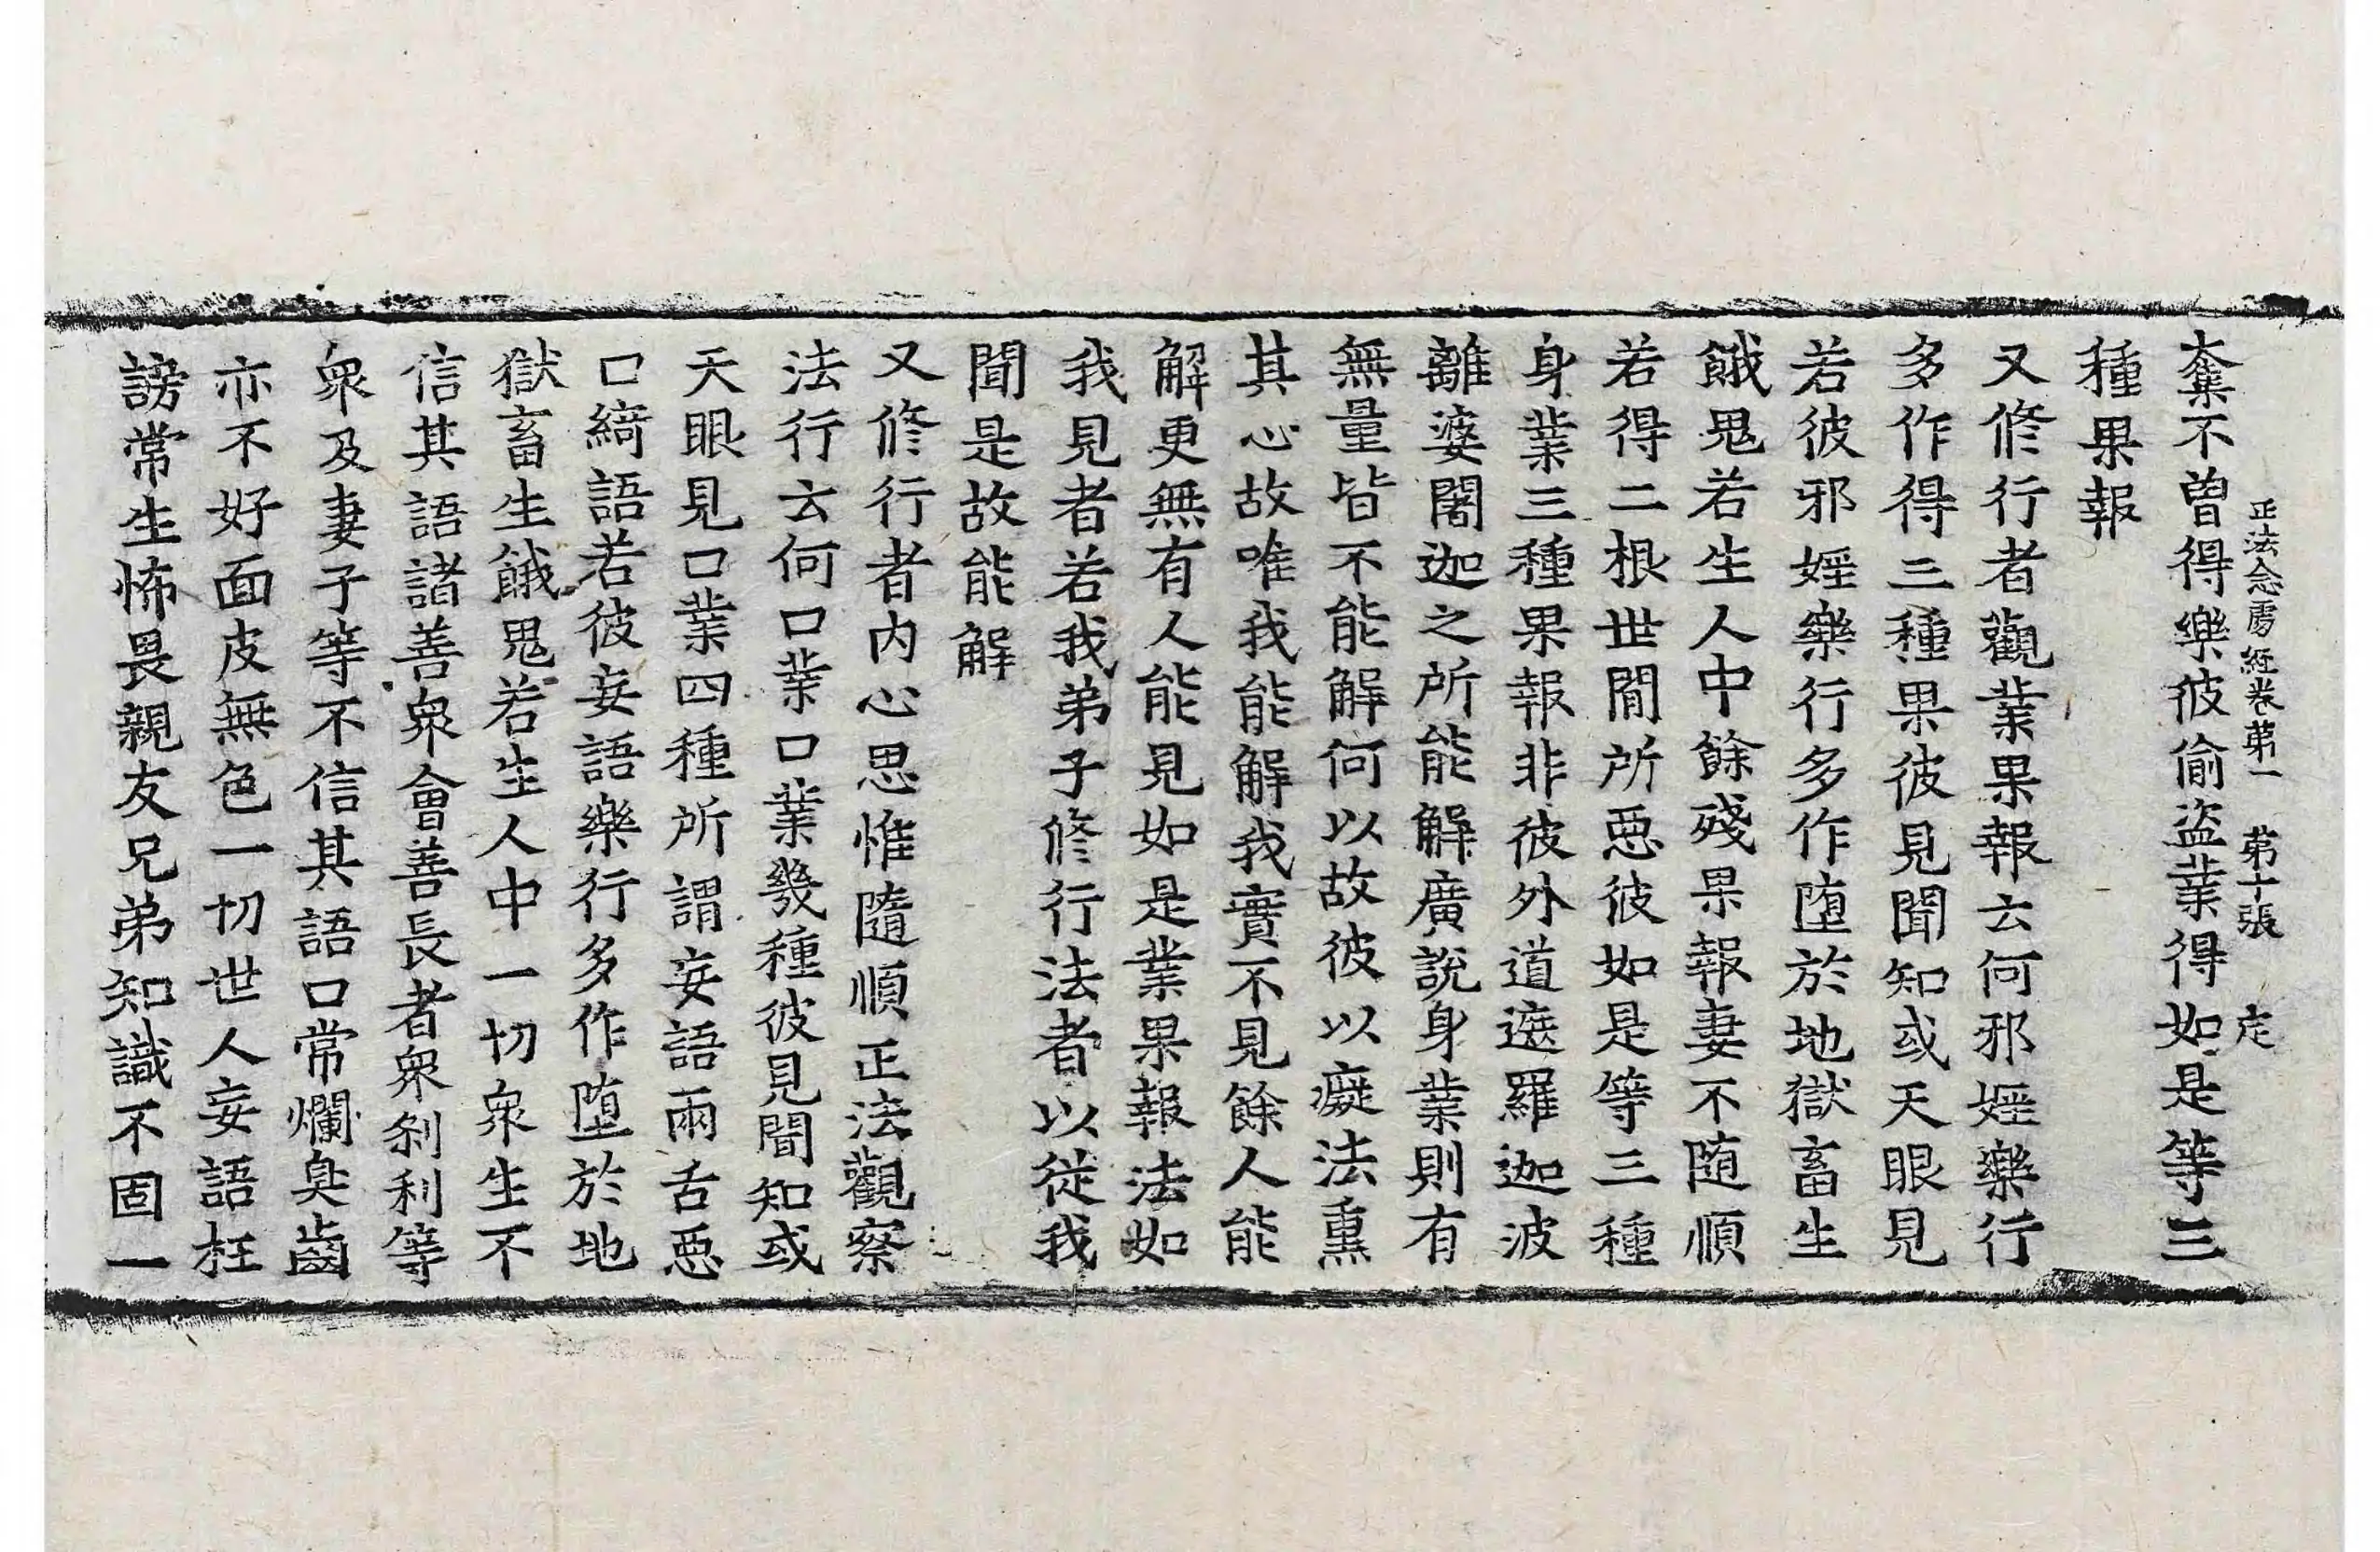 正法念處經卷第一　第十張　定
棄不曾得樂彼偷盜業得如是等三
種果報
又修行者觀業果報云何邪婬樂行
多作得三種果彼見聞知或天眼見
若彼邪婬樂行多作墮於地獄畜生
餓鬼若生人中餘殘果報妻不随順
若得二根世間所惡彼如是等三種
身業三種果報非彼外道遮羅迦波
離婆闍迦之所能解廣說身業則有
無量皆不能解何以故彼以癡法熏
其心故唯我能解我實不見餘人能
解更無有人能見如是業果報法如
我見者若我弟子修行法者以從我
聞是故能解
又修行者內心思惟隨順正法觀察
法行云何口業口業幾種彼見聞知或
天眼見口業四種所謂妄語兩舌惡
口綺語若彼妄語樂行多作墮於地
獄畜生餓鬼若生人中一切衆生不
信其語諸善衆會善長者衆刹利等
衆及妻子等不信其語口常爛臭齒
亦不好面皮無色一切世人妄語枉
謗常生怖畏親友兄弟知識不固一